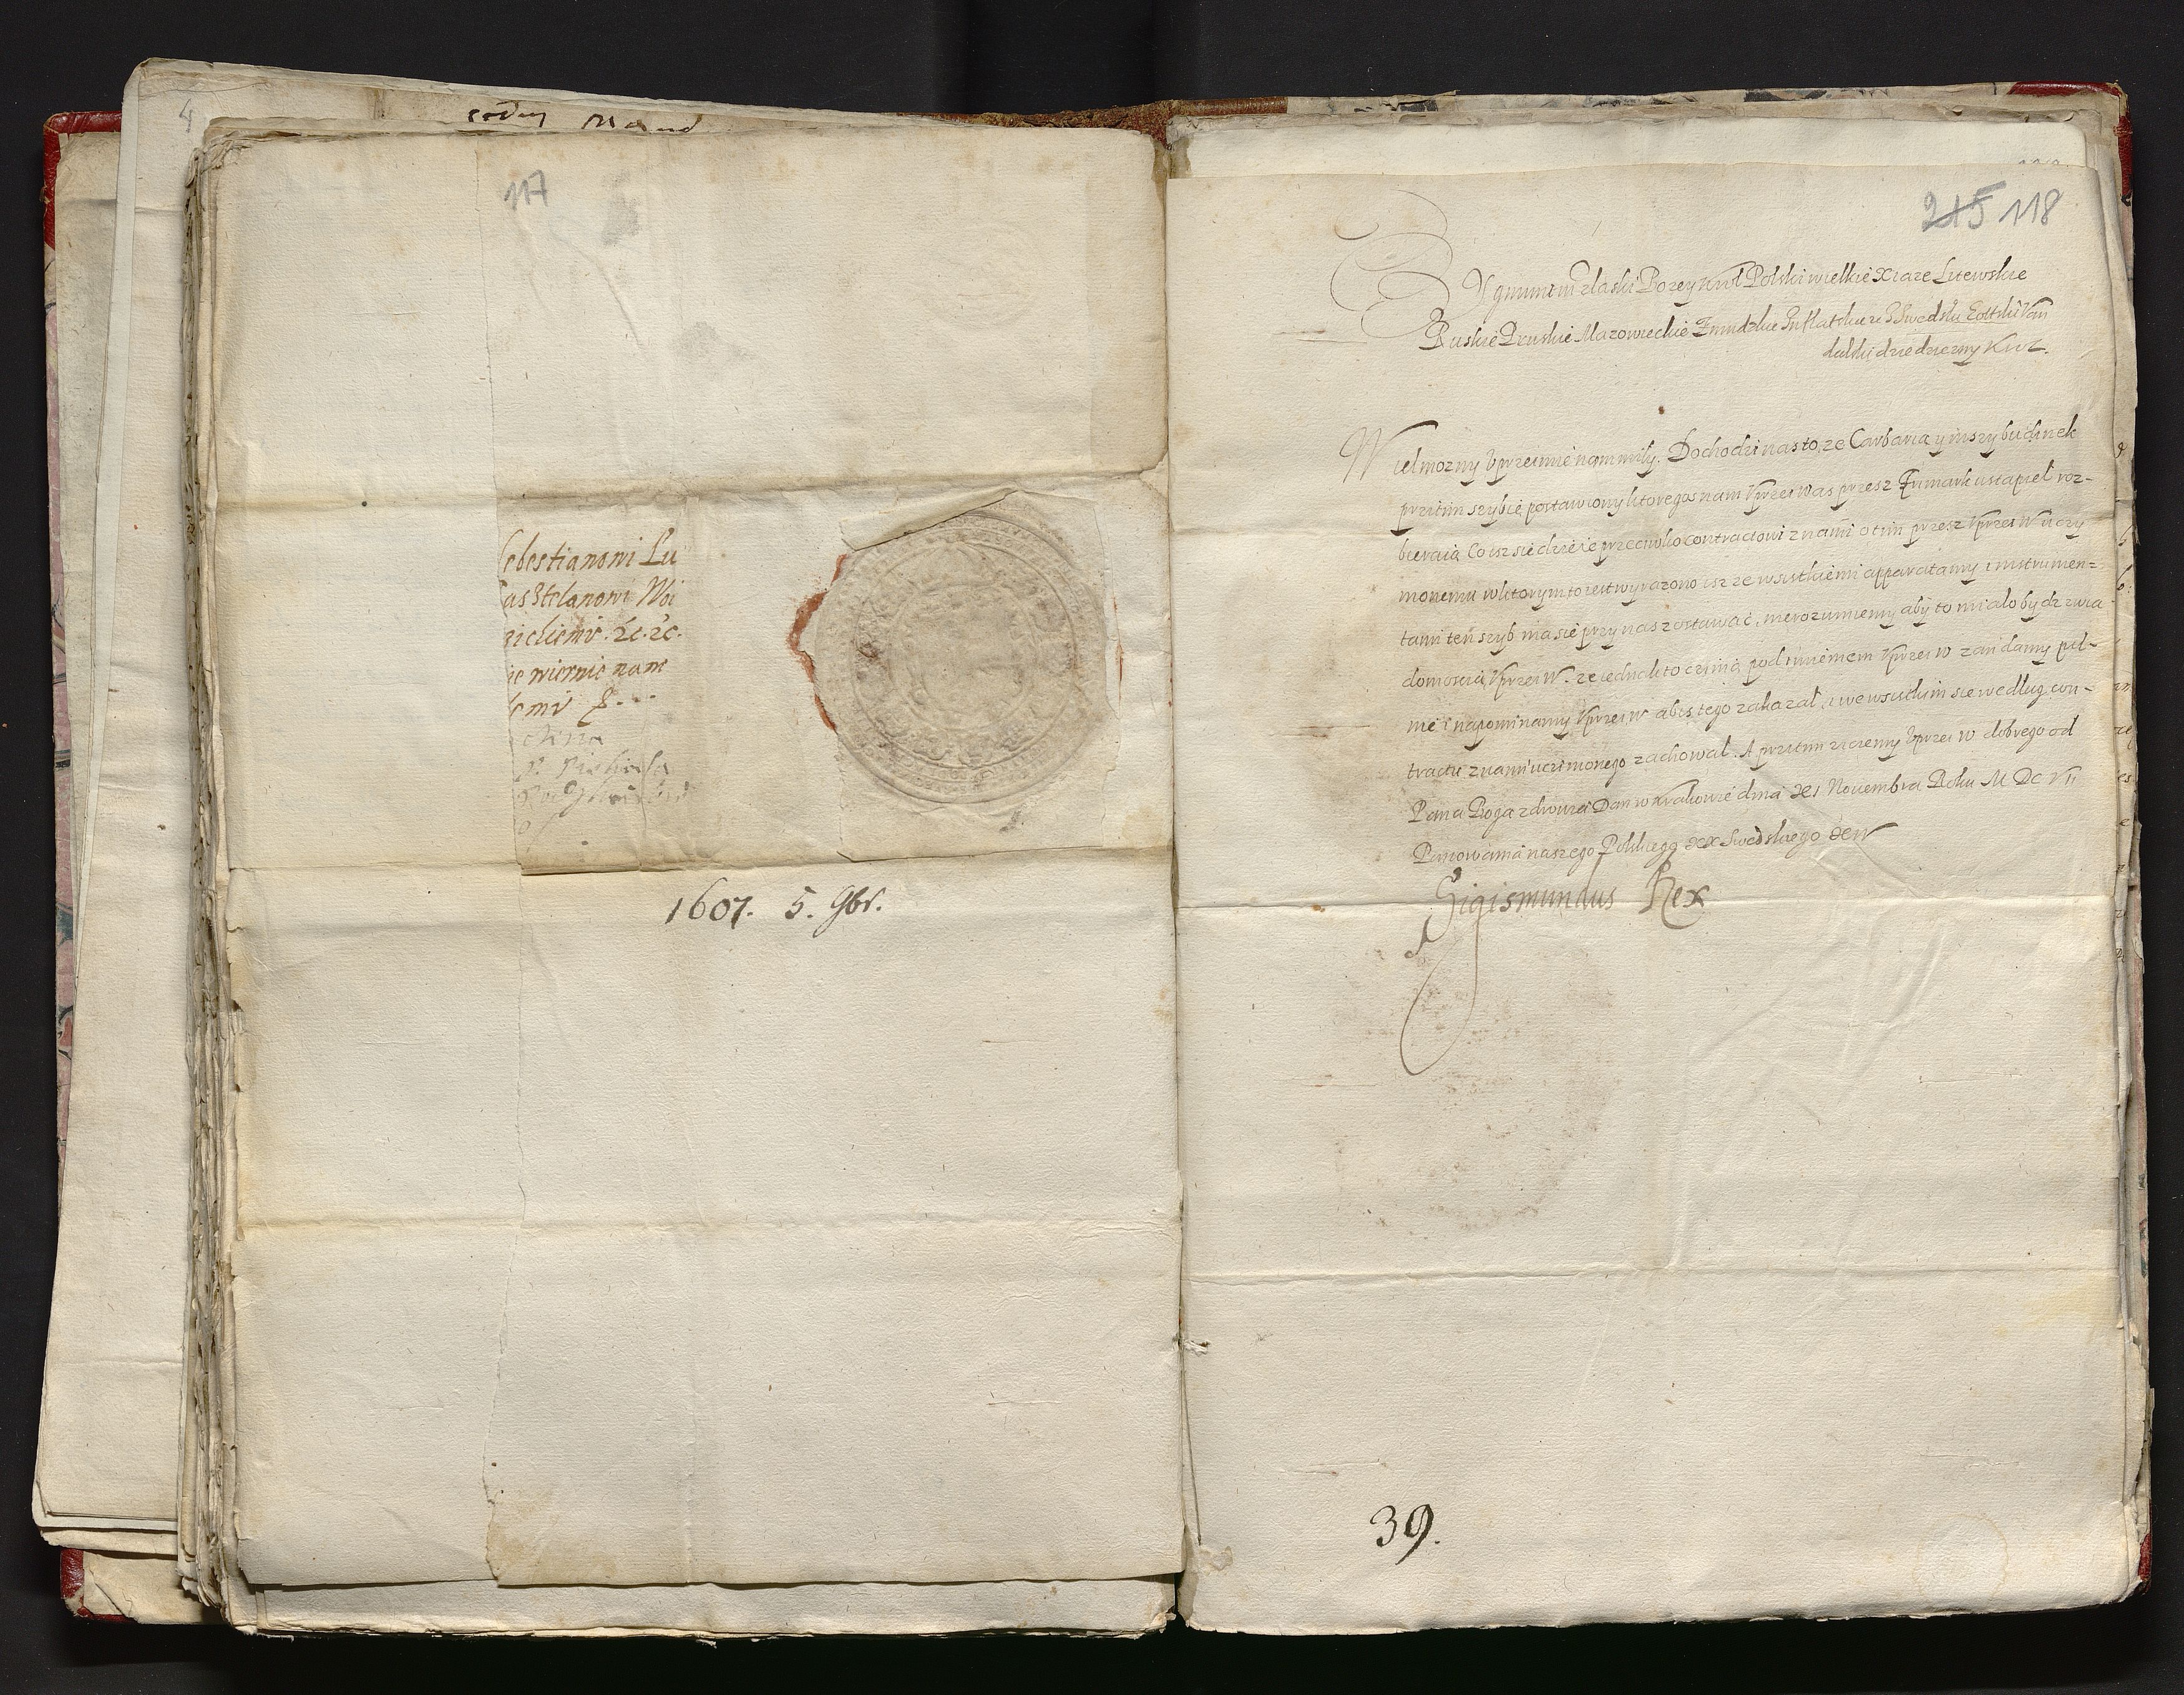 4
117
Sebestianowi Lu
Castelanowi Woi
nickiemu. &c. &c.
ie wiernie nam
lemu
1607. 5. 9br.
215 118
Zygmunt III z łaski Bozey Krol Polski wielkie Xiaze Litewskie
Ruskie Pruskie Mazowieckie Zmudzkie Inflatskie ze Swedski Gottski Van
dalski dziedziczny Krol.
Wielmozny Vprzeimie nam miły. Dochodzi nas to, ze Carbarią y inszy budinek
przitim szybie postawiony ktoregos nam Vprzei Was przesz frimark ustąpieł roz-
bieraią Co isz się dzieie przeciwko contractowi z nami o tim przesz Vprzei W uczy
nionemu w ktorym to iest wyrazono isz ze wsistkiemi apparatamy i instrumen=
tami ten szyb ma sie przy nas zostawać, nierozumiemy aby to miało bydz z wia
domoscią Vprzei W. ze iednak to czinią pod imieniem Vprzei W ządamy pil-
nie i napominamy Vprzei W abis tego zakazał, i we wsistkim sie według con-
tractu z nami uczinionego zachował. A przitim ziczemy Vprzei W dobrego od
Pana Boga zdrowia Dan w Krakowie dnia Novembra Roku M DC VII
Panowania naszego Polskiego xx Swedskiego xiv
Sigismundus Rex
39.